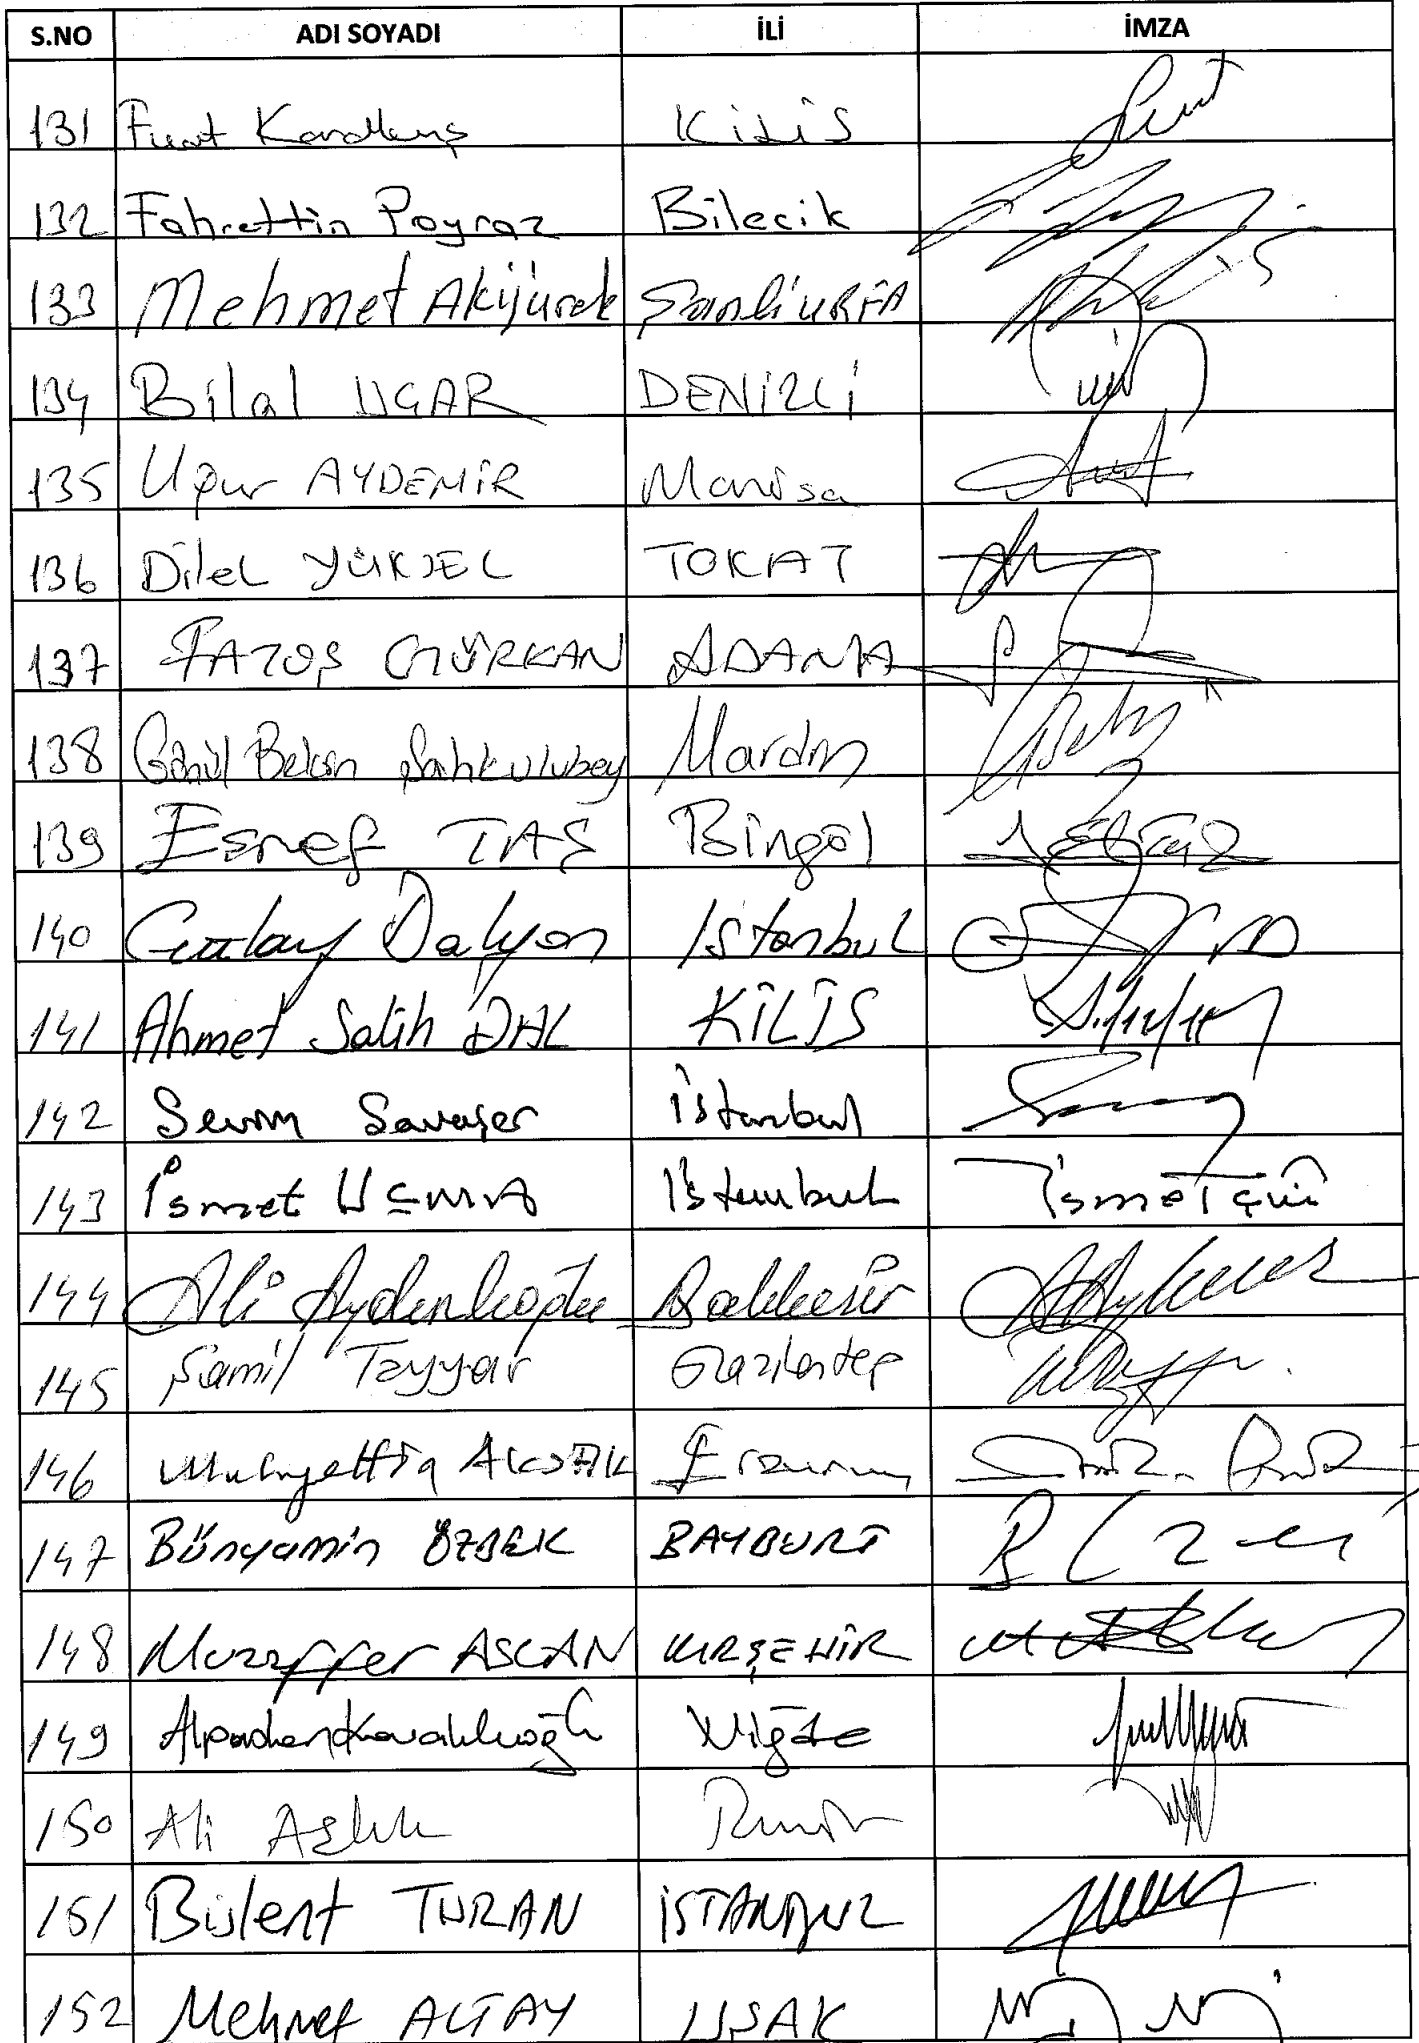 S.NO ADI SOYADI İLİ İMZA
131 Fuat Karakuş Kilis
132 Fahrettin Poyraz Bilecik
133 Mehmet Akyürek Şanlıurfa
134 Bilal UÇAR DENİZLİ
135 Uğur AYDEMİR Manisa
136 Dilek YÜKSEL TOKAT
137 FATOŞ GÜRKAN ADANA
138 Gönül Bekin Şahkulubey Mardin
139 Eşref TAŞ Bingöl
140 Gülay Dalyan İstanbul
141 Ahmet Salih DAL KİLİS
142 Sevim Savaşer İstanbul
143 İsmet UÇMA İstanbul
144 Ali Aydınlıoğlu Balıkesir
145 Şamil Tayyar Gaziantep
146 Muhyettin AKSAK Erzurum
147 Bünyamin ÖZBEK BAYBURT
148 Muzaffer ASLAN KIRŞEHİR
149 Alpaslan Kavaklıoğlu Niğde
150 Ali Aşlık
151 Bülent TURAN İSTANBUL
152 Mehmet ALTAY UŞAK